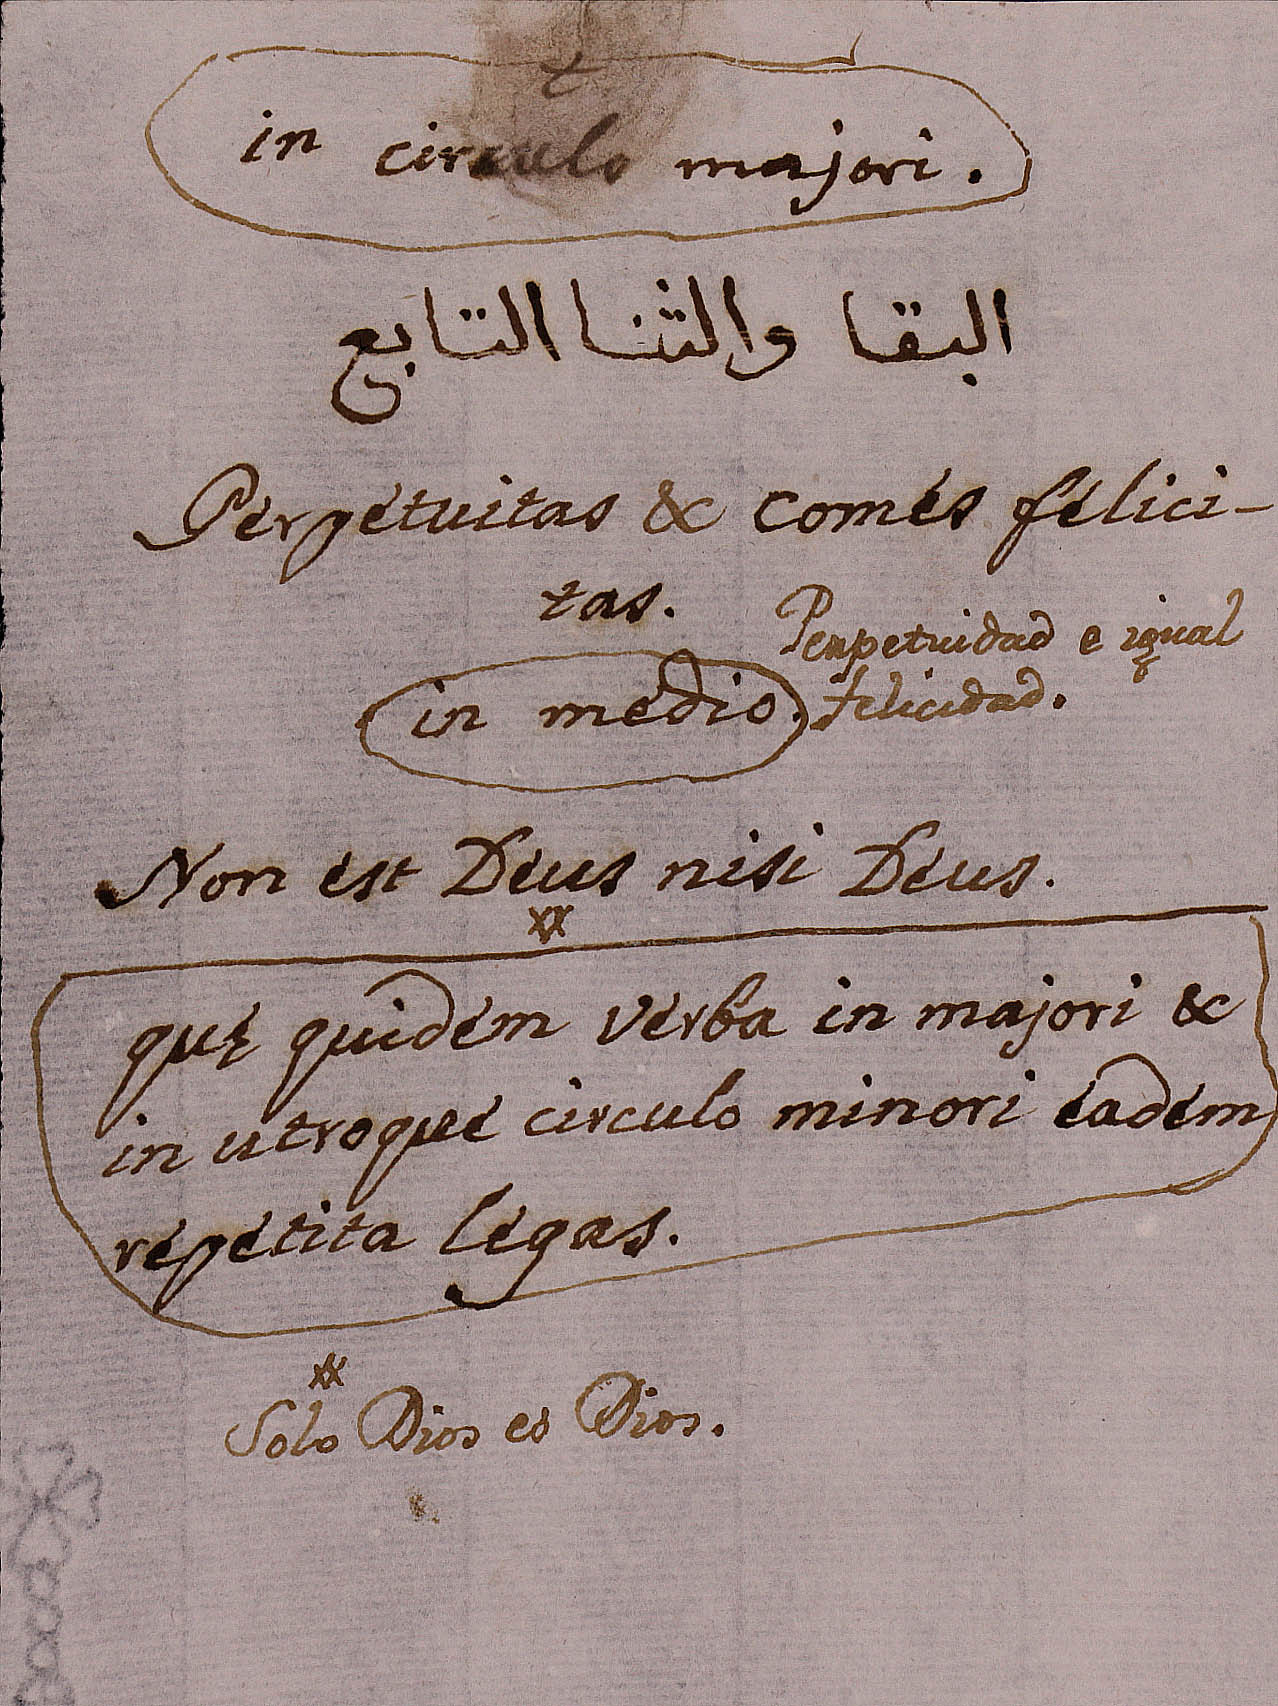 t
in circulo majori.
البقا والثنا التابع
Perpétuitas & comés félici-
tas.
Perpetuidad e igual
in médio. felicidad.
Non ést Déus nisi Déus.
xx
quę quidém vérba in majori &
in utroqué circulo minori éadém
répétita légas.
xx
Solo Dios es Dios.